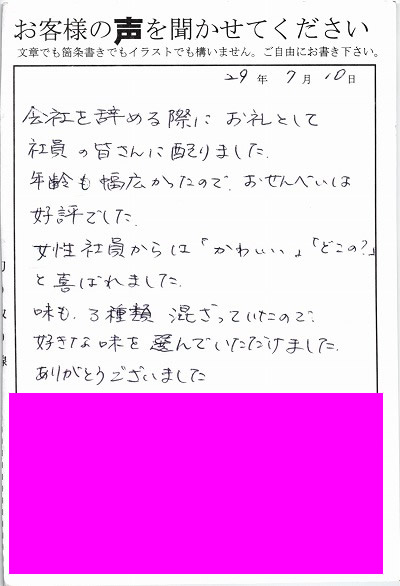 お客様の声を聞かせてください
文章でも箇条書きでもイラストでも構いません。ご自由にお書き下さい。
29年7月10日
会社を辞める際に お礼として
社員の皆さんに配りました.
年齢も幅広かったので、おせんべいは
好評でした.
女性社員からは「かわいい」,「どこの?」
と喜ばれました.
味も、3種類 混ざっていたので、
好きな味を選んでいただけました.
ありがとうございました
り取り線